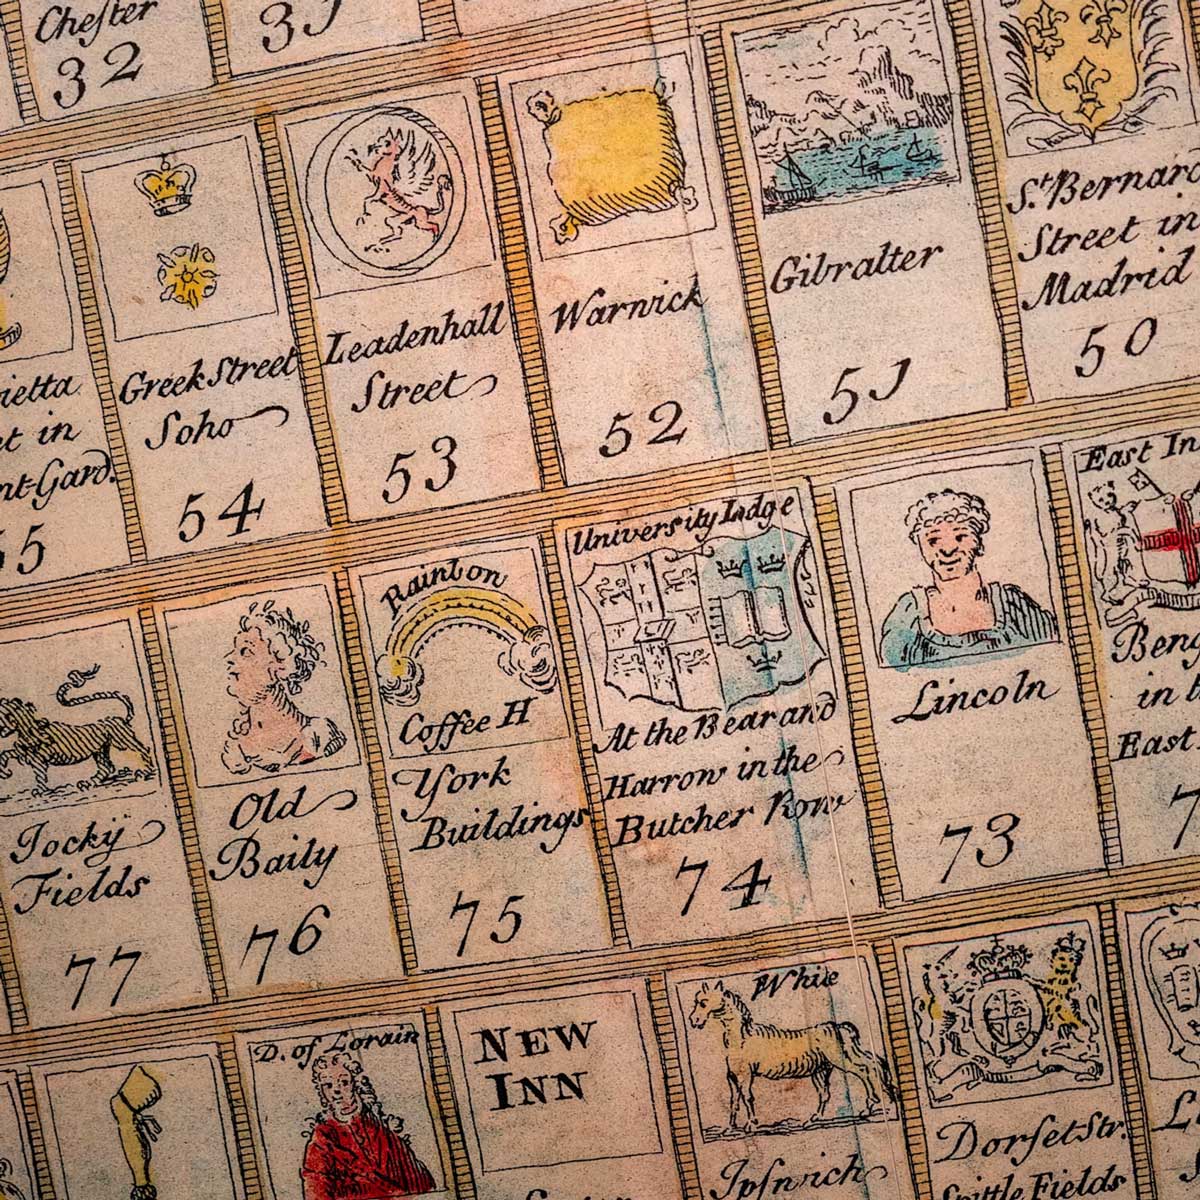 Chester
32
Greek Street
Soho
54
Leadenhall
Street
53
Warwick
52
Gibralter
51
St. Bernard
Street in
Madrid
50
rietta
et in
nt-Gard.
55
Jocky
Fields
77
Old
Baily
76
Rainbow
Coffee H
York
Buildings
75
University Lodge
At the Bear and
Harrow in the
Butcher Row
74
Lincoln
73
East In
Beng
in t
East
7
D. of Lorain
NEW
INN
White
Ipswich
Dorset Str.
Spittle Fields